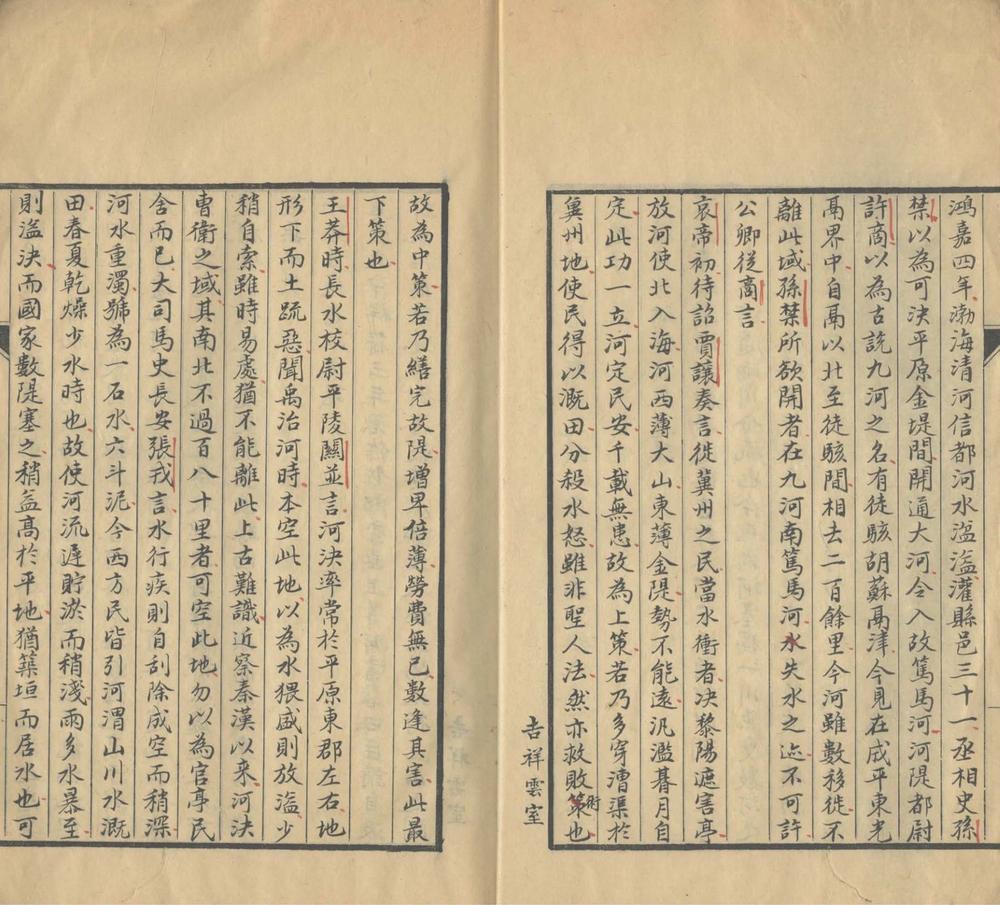 鴻嘉四年渤海清河信都河水湓溢灌縣邑三十一丞相史孫
禁以為可決平原金堤間開通大河令入故篤馬河河隄都尉
許商以為古說九河之名有徒駭胡蘇鬲津今見在成平東光
鬲界中自鬲以北至徒駭間相去二百餘里今河雖數移徙不
離此域孫禁所欲開者在九河南篤馬河水失水之迹不可許
公卿從商言
哀帝初待詔賈讓奏言徙冀州之民當水衝者決黎陽遮害亭
放河使北入海河西薄大山東薄金隄勢不能遠汎濫朞月自
定此功一立河定民安千載無患故為上策若乃多穿漕渠於
冀州地使民得以溉田分殺水怒雖非聖人法然亦救敗策也
術
吉祥雲室
故為中策若乃繕完故隄增卑倍薄勞費無已數逢其害此最
下策也
王莽時長水校尉平陵關並言河決率常於平原東郡左右地
形下而土疏惡聞禹治河時本空此地以為水猥盛則放溢少
稍自索雖時易處猶不能離此上古難識近察秦漢以來河決
曹衛之域其南北不過百八十里者可空此地勿以為官亭民
舍而已大司馬史長安張戎言水行疾則自刮除成空而稍深
河水重濁號為一石水六斗泥今西方民皆引河渭山川水溉
田春夏乾燥少水時也故使河流遲貯淤而稍淺雨多水暴至
則溢決而國家數隄塞之稍益高於平地猶築垣而居水也可